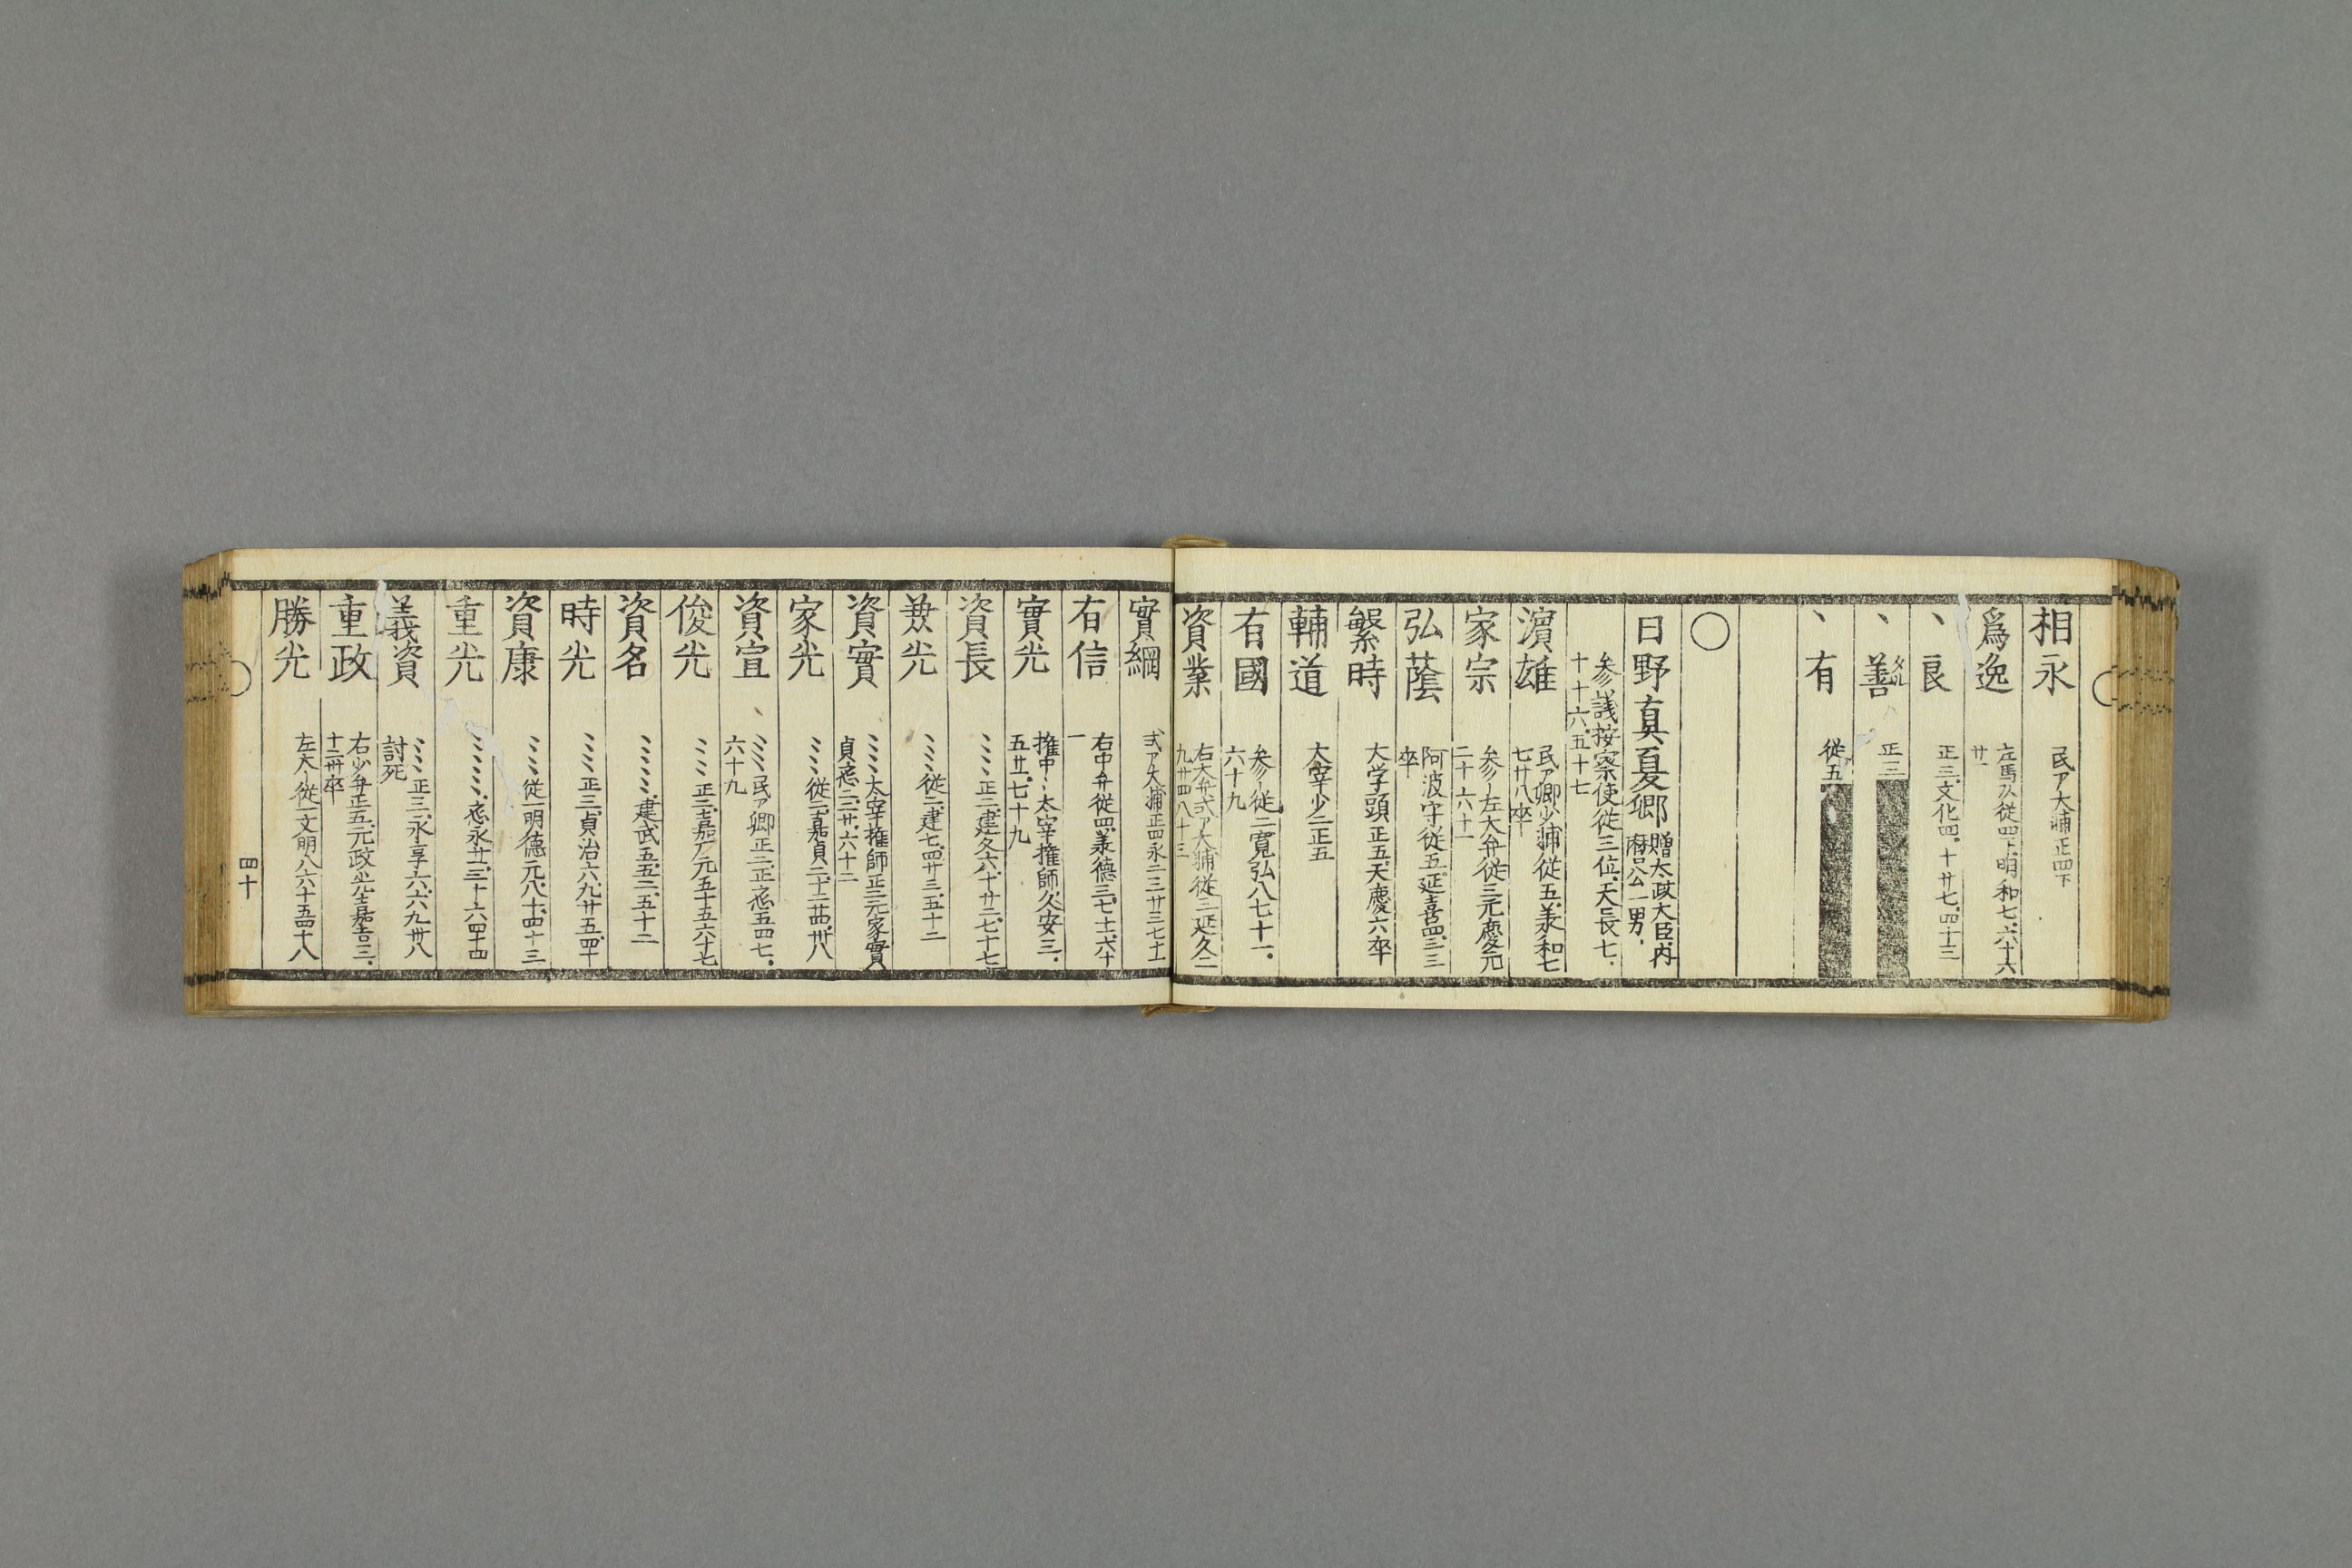 相永 民ア大輔正四下
爲逸 左馬頭従四下明和七、六十六
廿一
丶良 正三、文化四、十廿七、四十三
丶善 正三
丶有 従五
○
日野真夏卿 贈太政大臣内
麿公一男、
参議按察使従三位、天長七、
十十六、五十七
濵雄 民ア卿少輔従五、羕和七
七廿八卒
家宗 参〳〵左大弁従三元慶元
二十六十一
弘蔭 阿波守従五延喜四、三
卒
繁時 大学頭正五天慶六卒
輔道 大宰少二正五
有國 参〳〵従二寛弘八七十一、
六十九
資業 右大弁弍ア大輔従三延久二
九廿四八十三
實綱 弍ア大輔正四永二三廿三七十一
有信 右中弁従四羕德三、七十一、六十
一
實光 権中〳〵太宰権師久安三、
五廿一、七十九
資長 ミミミミ正二建久六、十廿二、七十七
兼光 ミミミ従二、建七、四廿三、五十二
資實 ミミミミ太宰権師正二元家實
貞應二、二廿、六十二
家光 ミミミ従二、嘉貞二、十二十四、卅八
資宣 ミミミ民ア卿正二、正應五四七、
六十九
俊光 ミミミ正二、嘉ア元五十五六十七
資名 ミミミミ建武五、五二、五十二
時光 ミミミ正二、貞治六九、廿五、四十
資康 ミミミ従一明德元八、十、四十三
重光 ミミミミ、應永廿、三十六四十四
義資 ミミミ正三、永享六、六、九卅八
討死
重政 右少弁正五、元政光嘉吉三、
十二卅卒
勝光 左大〳〵従一文明八六十五四十八
四十